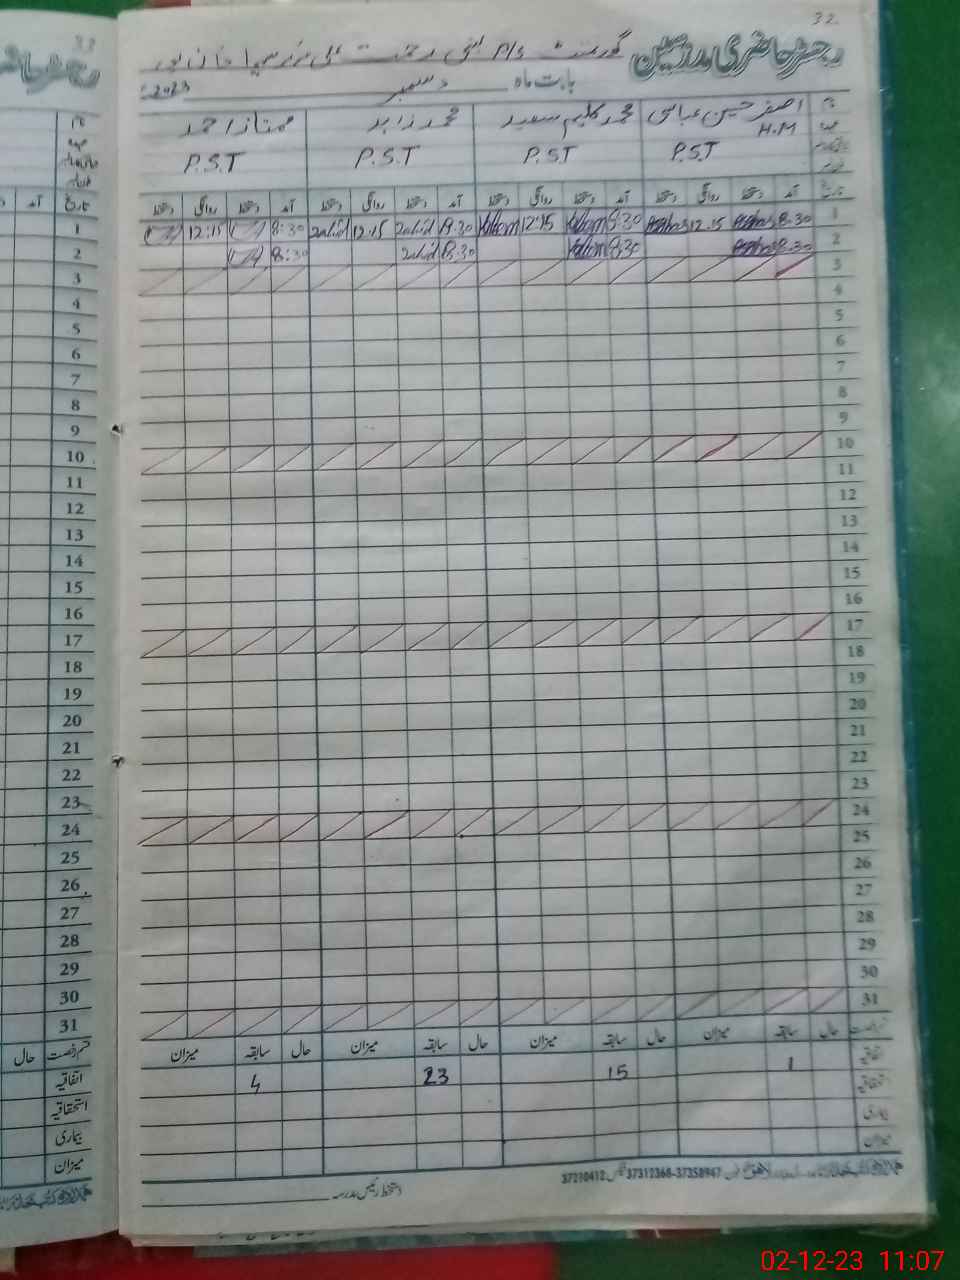 32
رجسٹر حاضری مدرسین
گورنمنٹ P/S بستی رحمت علی
بابت ماہ دسمبر 2023
نام اصغر حسین عباسی محمد کلیم سعید محمد زاہد ممتاز احمد
عہدہ H.M
P.S.T P.S.T P.S.T P.S.T
تاریخ آمد دستخط روانگی دستخط آمد دستخط روانگی دستخط آمد دستخط روانگی دستخط آمد دستخط روانگی دستخط
1 8:30 12:15 8:30 Kaleem 12:15 Kaleem 8:30 Zahid 12:15 Zahid 8:30 12:15
2 8:30 8:30 Kaleem 8:30 Zahid 8:30
3
4
5
6
7
8
9
10
11
12
13
14
15
16
17
18
19
20
21
22
23
24
25
26
27
28
29
30
31
قسم رخصت حال سابقہ میزان حال سابقہ میزان حال سابقہ میزان حال سابقہ میزان
اتفاقیہ 1 15 23 4
استحقاقیہ
بیماری
میزان
دستخط رئیس مدرسہ
37210412 37312368-37358947
33
رجسٹر حاضری
نام
عہدہ
تاریخ آمد
1
2
3
4
5
6
7
8
9
10
11
12
13
14
15
16
17
18
19
20
21
22
23
24
25
26
27
28
29
30
31
قسم رخصت حال
اتفاقیہ
استحقاقیہ
بیماری
میزان
02-12-23 11:07